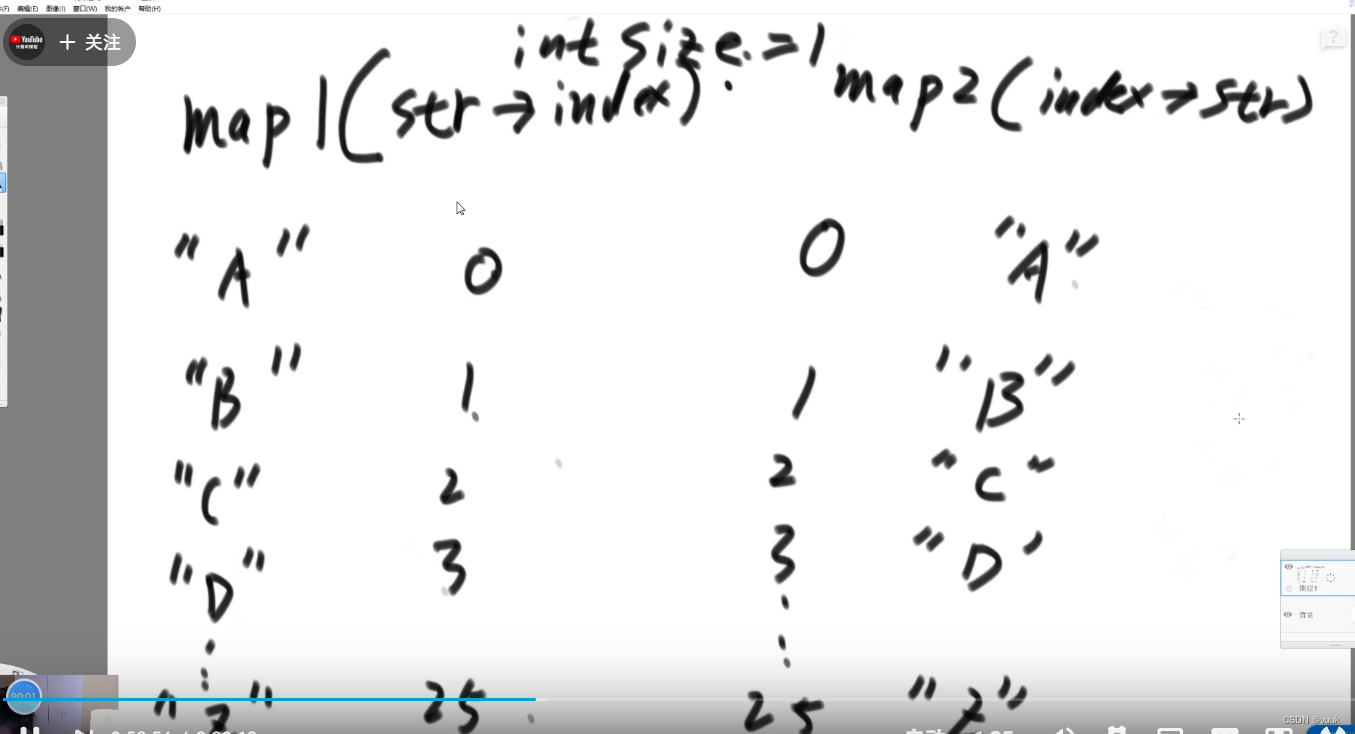 编辑(E) 图像(I) 窗口(W) 我的帐户 帮助(H)
YouTube
+ 关注
int size = 1
map1(str→index) map2(index→str)
"A" 0 0 "A"
"B" 1 1 "B"
"C" 2 2 "C"
"D" 3 3 "D"
图层1
背景
00:01
"Z" 25 25 "Z"
CSDN @vuuk